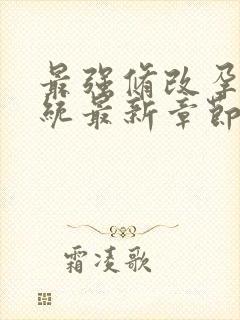 最强修改孕
统最新章节
霜凌歌